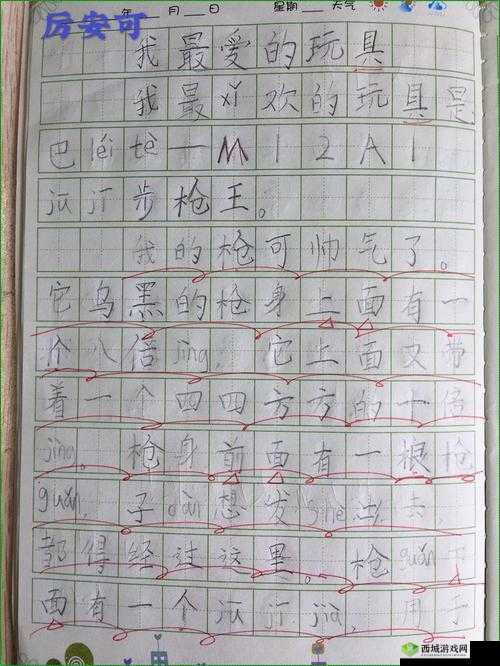 年 月 日 星期 天气
厉安可
我最爱的玩具
我最xǐ欢的玩具是
巴léi tè一M12A1
jū jī步枪王。
我的枪可帅气了。
它乌黑的枪身上面有一
个八倍jìng,它上面又带
着一个四四方方的十倍
jìng。枪身前面有一根枪
guǎn,子dàn想发shè出去,
都得经过这里。枪guǎn下
面有一个jū jī jià,用于
西城游戏网